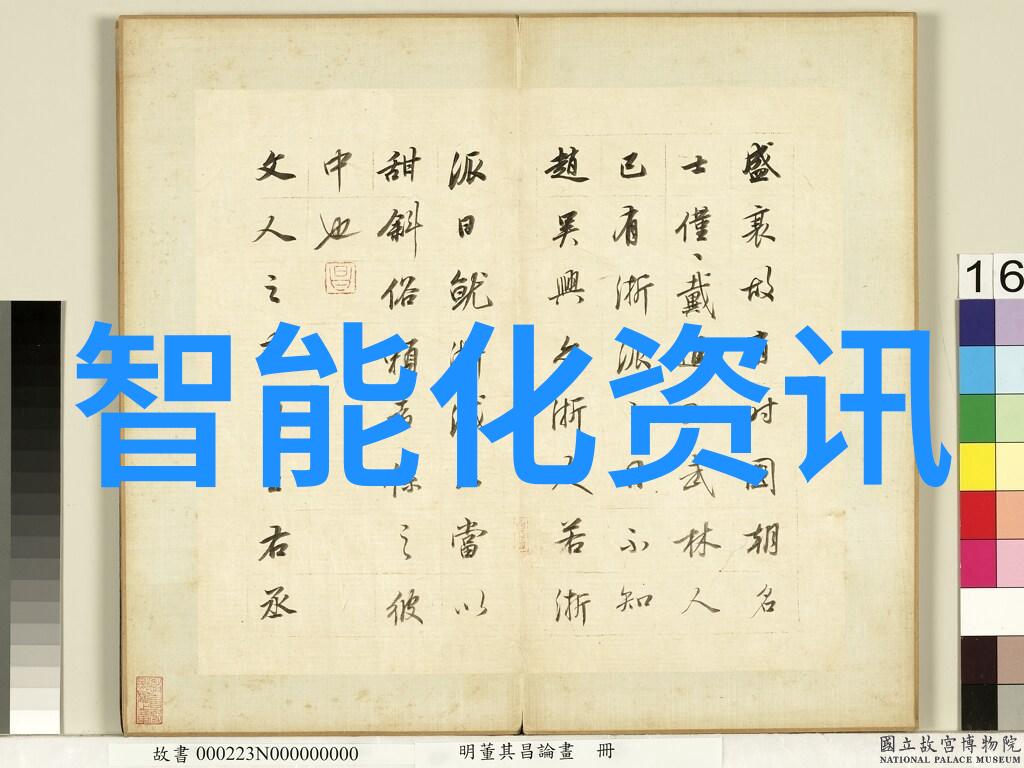 盛衰故時國朝名
士僅戴進武林人
已有浙派目不知
趙吳興亦浙人若浙
派日就澌滅當以
甜斜俗賴者係之彼
中也
文人之右丞
智能化资讯
16
故書 000223N000000000
明董其昌論畫 冊
國立故宮博物院
NATIONAL PALACE MUSEUM